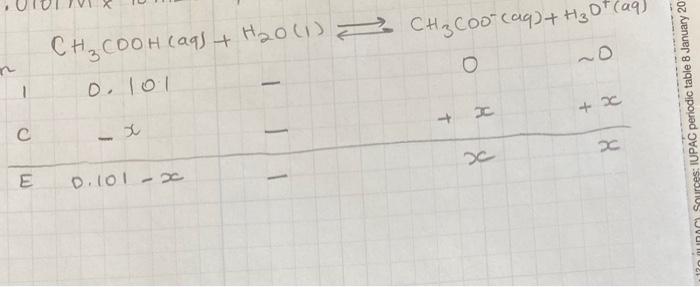 CH₃COOH(aq) + H₂O(l) ⇌ CH₃COO⁻(aq) + H₃O⁺(aq)
I 0.101 – 0 ~0
C – x – + x + x
E 0.101 – x – x x
Sources: IUPAC periodic table 8 January 20